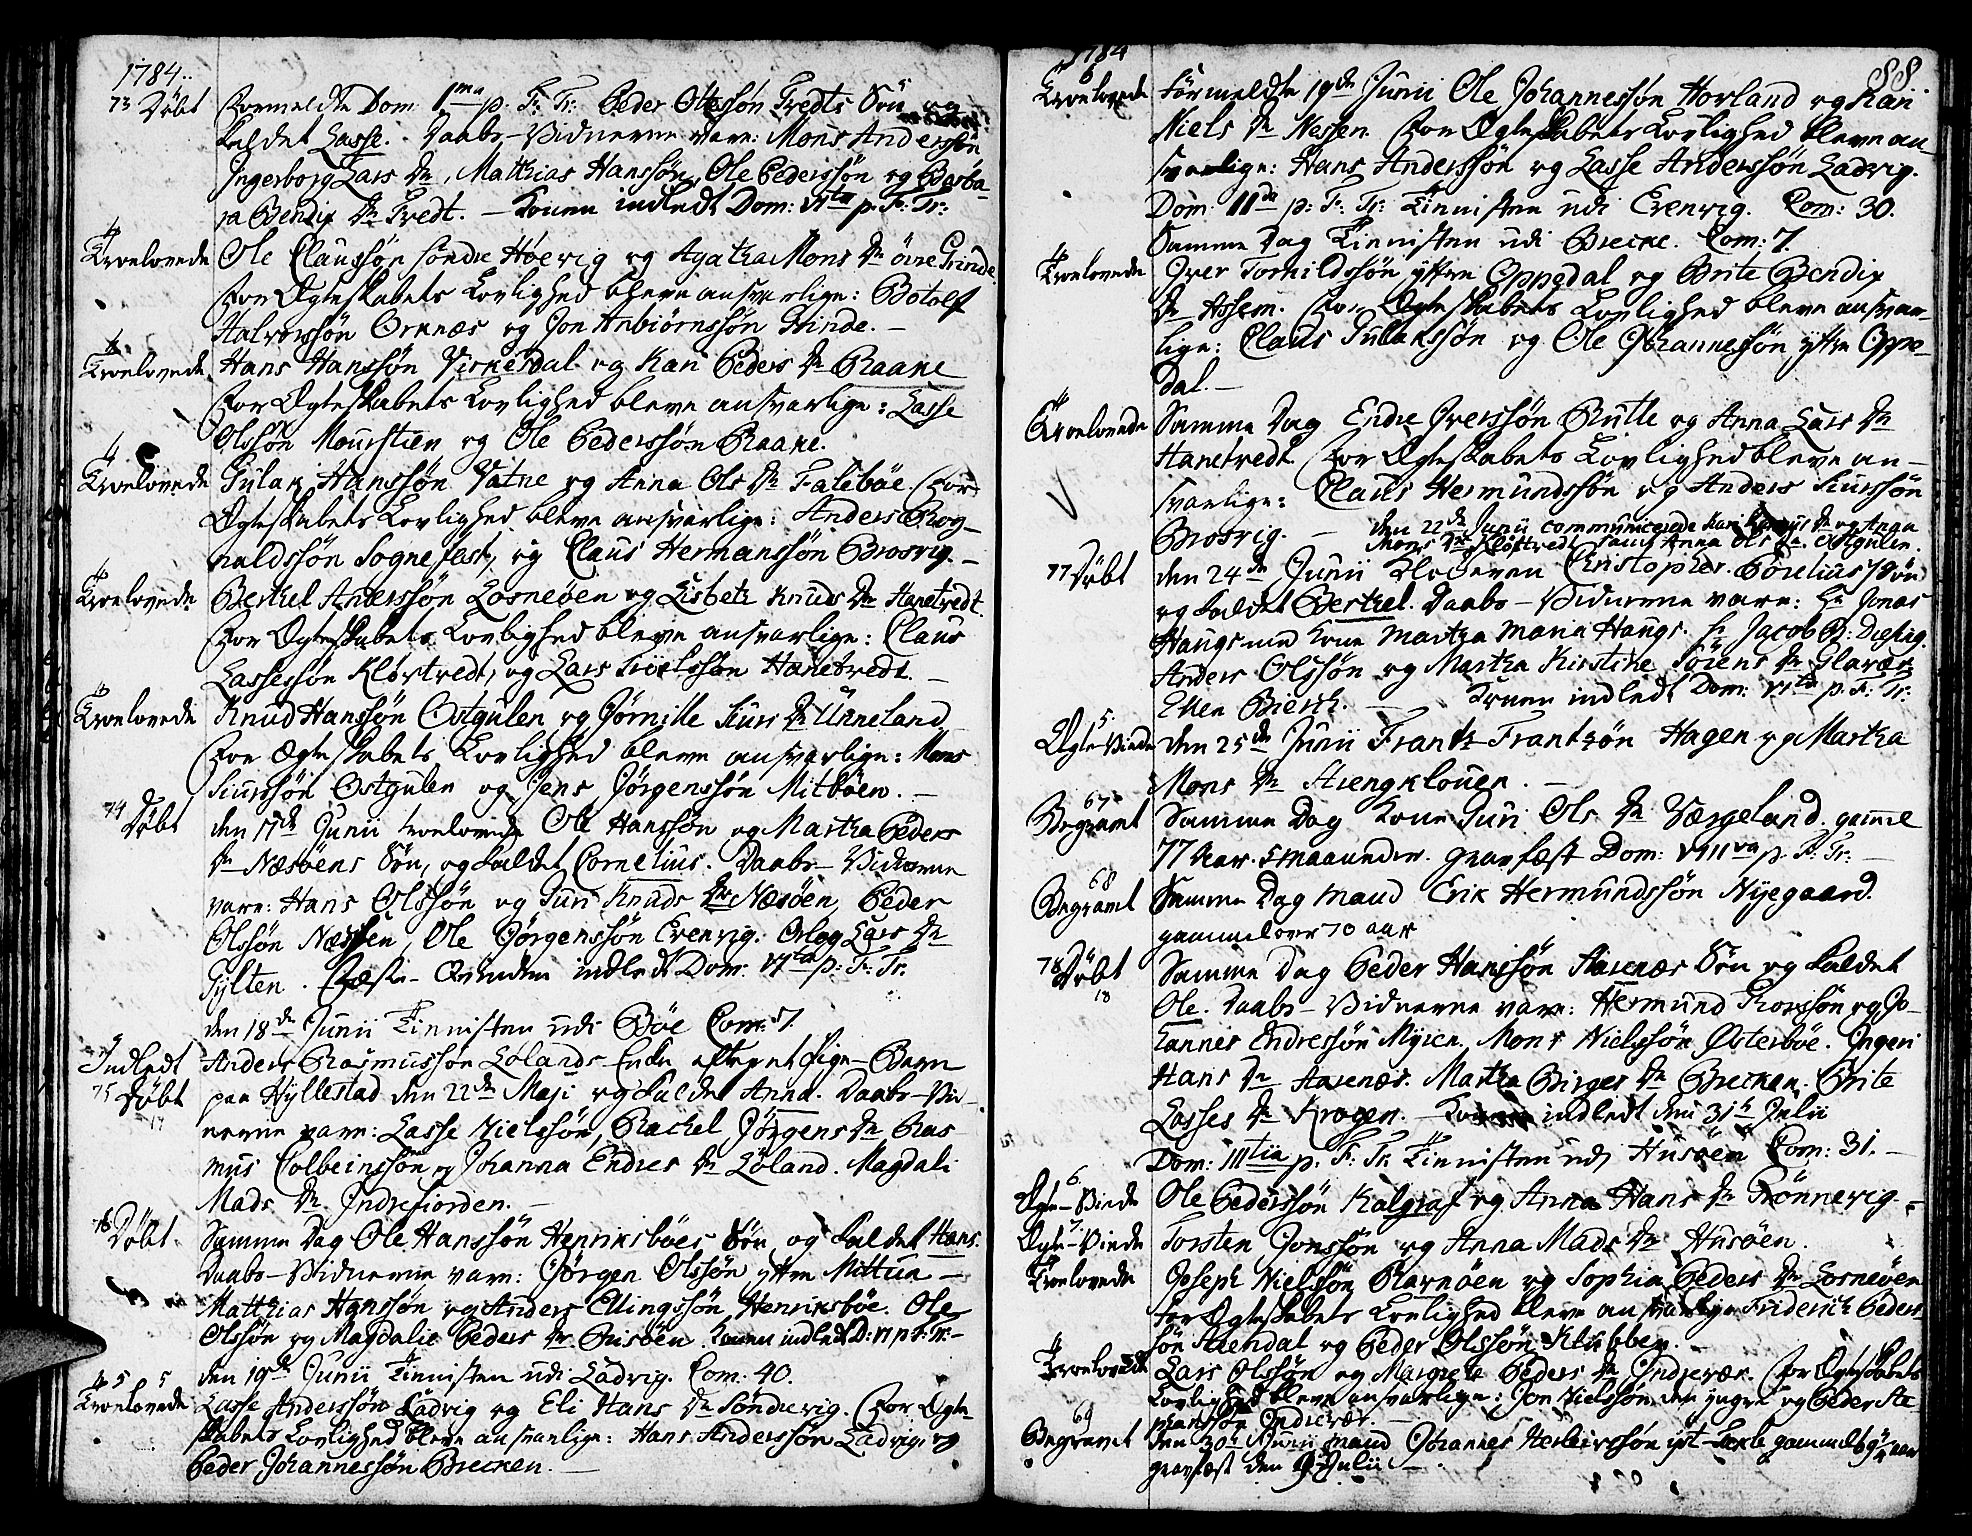 1784.
73 Døbt Formeldte Dom: 1ma p. F: Tr: Peder Ottessøn Tredts Søn og
kaldet Lasse. Daabs-Vidnerne vare: Mons Anderssøn
Ingerborg Lars Dr, Mathias Hanssøn, Ole Pederssøn og Barba-
ra Bendix Dr Tredt. - Konen indledt Dom: VIta p. F: Tr:
Troelovede Ole Claussøn søndre Høevig og Agatha Mons Dr øvre Grinde
For Ægteskabets Lovlighed bleve ansvarlige: Botolf
Halvorssøn Ornæs og Jon Anbiørnssøn Hinde. -
Troelovede Hans Hanssøn Virkesdal og Kari Peders Dr Raane
For Ægteskabets Lovlighed bleve ansvarlige: Lasse
Olssøn Mourstien og Ole Pederssøn Raane.
Troelovede Gylak Hanssøn Vatne og Anna Ols Dr Faleböe For
Ægteskabets Lovlighed bleve ansvarlige: Anders Rog-
naldssøn Sognefast, og Claus Hermanssøn Brosvig. -
Troelovede Berthel Anderssøn Losneöen og Lisbeth Knuds Dr Hanetvedt.
For Ægteskabets Lovlighed bleve ansvarlige: Claus
Lassessøn Kløvtvedt, og Lars Troelssøn Hanetvedt. -
Troelovede Knud Hanssøn Ostgulen og Jørnille Siurs Dr Unneland
For Ægteskabets Lovlighed bleve ansvarlige: Mons
Siurssøn Ostgulen og Jens Jørgenssøn Mitböen. -
74 Døbt den 17de Junii troelovede Ole Hanssøn og Martha Peders
Dr Næsöens Søn, og kaldet Cornelius. Daabs-Vidnerne
vare: Hans Olssøn og Guri Knuds Dr Næsöen, Peder
Olssøn Næssen, Ole Jørgenssøn Evenvig. Orlog Lars Dr
Gylten. Fæste-Qvinden indledt Dom: VIta p: F: Tr.
den 18de Junii Tienisten udi Böe Com: 7.
Indledt Anders Rasmussøn Lölands Enke efter et Pige-Barn
75 Døbt paa Hyllestad den 22de Maji og kaldet Anna. Daabs-Vid-
nerne vare: Lasse Nielssøn, Rachel Jørgens Dr Ras
mus Colbeinssøn og Johanna Endres Dr Löland. Magdali
Mads Dr Indrefiorden. -
76 Døbt Samme Dag Ole Hanssøn Henriksböes Søn og kaldet Hans.
Daabs-Vidnerne vare: Jørgen Olssøn yttre Mittun -
Matthias Hanssøn og Anders Ellingssøn Henriksböe. Ole
Olssøn og Magdalie Peders Dr Husöen. Konen indledt D: VI p F: Tr: -
den 19de Junii Tienisten udi Ladvig. Com: 40.
Troelovede Lasse Anderssøn Ladvig og Eli Hans Dr Söndrevig. For Ægte-
skabets Lovlighed bleve ansvarlige: Hans Anderssøn Ladvig og
Peder Johannessøn Brecken. -
1784 88.
Troelovede Formeldte 19de Junii Ole Johannessøn Horland og Kari
Niels Dr Nessen. For Ægteskabets Lovlighed bleve an-
svarlige: Hans Anderssøn og Lasse Anderssøn Ladvig.
Dom: IIda p: F: Tr: Tienisten udi Evenvig. Com: 30.
Samme Dag Tienisten udi Brecke. Com: 7.
Troelovede Iver Torkildssøn yttre Oppedal og Brite Bendix
Dr Assem. For Ægteskabets Lovlighed bleve ansvar-
lige: Claus Gulakssøn og Ole Johannessøn yttre Oppe-
dal. -
Troelovede Samme Dag Endre Iverssøn Rutle og Anna Lars Dr
Hanetvedt. For Ægteskabets Lovlighed bleve an-
svarlige: Claus Hermundssøn og Anders Siurssøn
Brosvig. - den 22de Junii communicerede Kari Dr og Anna
Mons Dr Kløvtvedt samt Anna Ols Dr Ostgulen.
77 Døbt den 24de Junii Klocheren Christopher Borelius Søn
og kaldet Berthel. Daabs-Vidnerne vare: Hr Jonas
Haugs med Kone Martha Maria Haugs. Hr Jacob B:
Anders Olssøn og Martha Kirstine Sörens Dr Glavær
Ellen Biersk. - Konen indledt Dom: VIta p. F: Tr:
5. Ægte-Viede den 25de Junii Frantz Frantzøn Hagen og Martha
Mons Dr Strengklouen. -
67 Begravet Samme Dag Kone Guri Ols Dr Værgeland. gammel
77 Aar. 5 maaneder. gravfæst Dom: VIIIva p. F: Tr: -
68 Begravet Samme Dag Mand Erik Hermundssøn Nyegaard.
gammel over 70 aar
78 Døbt Samme Dag Peder Hanssøn Aasenæs Søn og kaldet
18 Ole. Daabs-Vidnerne vare: Hermund Roessøn og Jo-
hannes Endressøn Myren. Mons Nielssøn Østerböe. Ingeri
Hans Dr Aasenæs. Martha Birges Dr Brecken. Brite
Lasses Dr Krogen. - Konen indledt den 31te Julii
Dom: IIItia p. F: Tr: Tienisten udi Husöen Com: 31. -
6. Ægte-Viede Ole Pederssøn Kalgraf og Anna Hans Dr Trönnevig. -
7. Ægte-Viede Torsten Jonssøn og Anna Mads Dr Husöen.
Troelovede Joseph Nielssøn Ravnöen og Sophia Peders Dr Losneöen
For Ægteskabets Lovlighed bleve ansvarlige Friderich Peders
søn Stendal og Peder Olssøn Klubben.
Troelovede Lars Olssøn og Margrete Peders Dr Indrevær. For Ægteskabets
Lovlighed bleve ansvarlige: Jon Nielssøn den yngre og Peder Ste
phanssøn Indrevær. -
69 Begravet den 30te Junii Mand Johannes Herleivssøn gammel
gravfæst den 9de Julii -